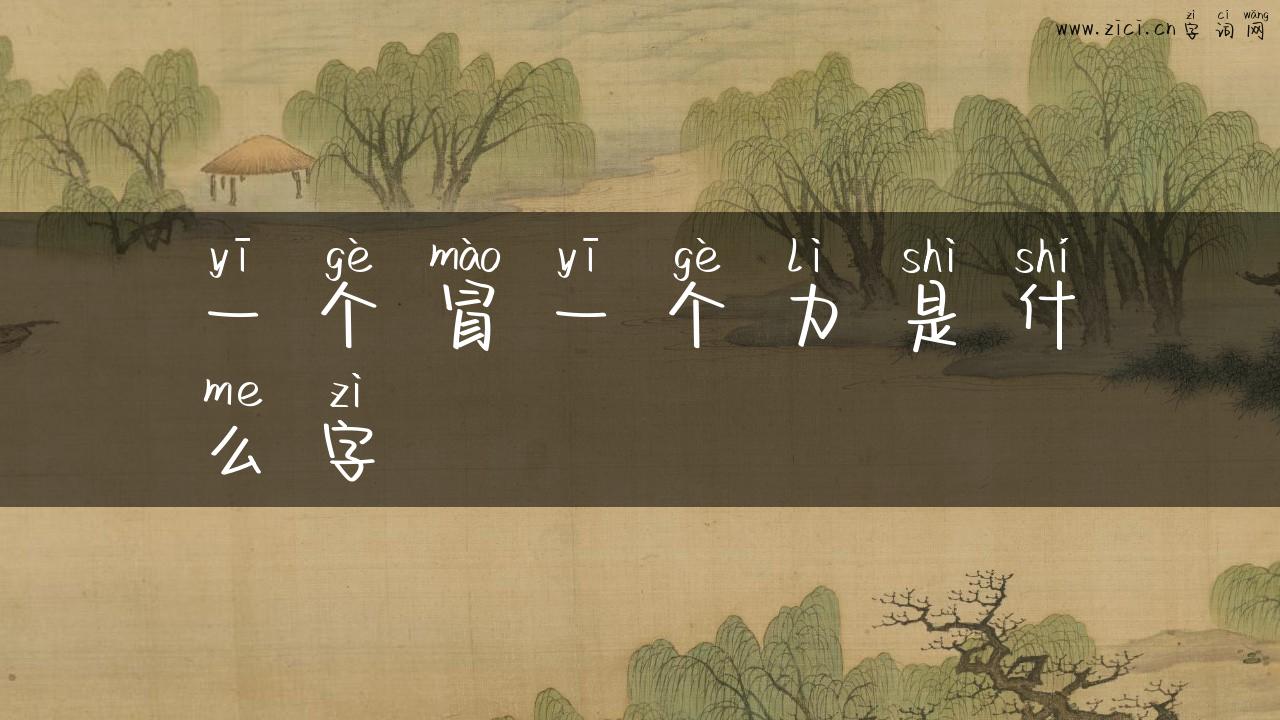 zì cí wǎng
www.zici.cn 字词网
yī gè mào yī gè lì shì shí
一个冒一个力是什
me zì
么字